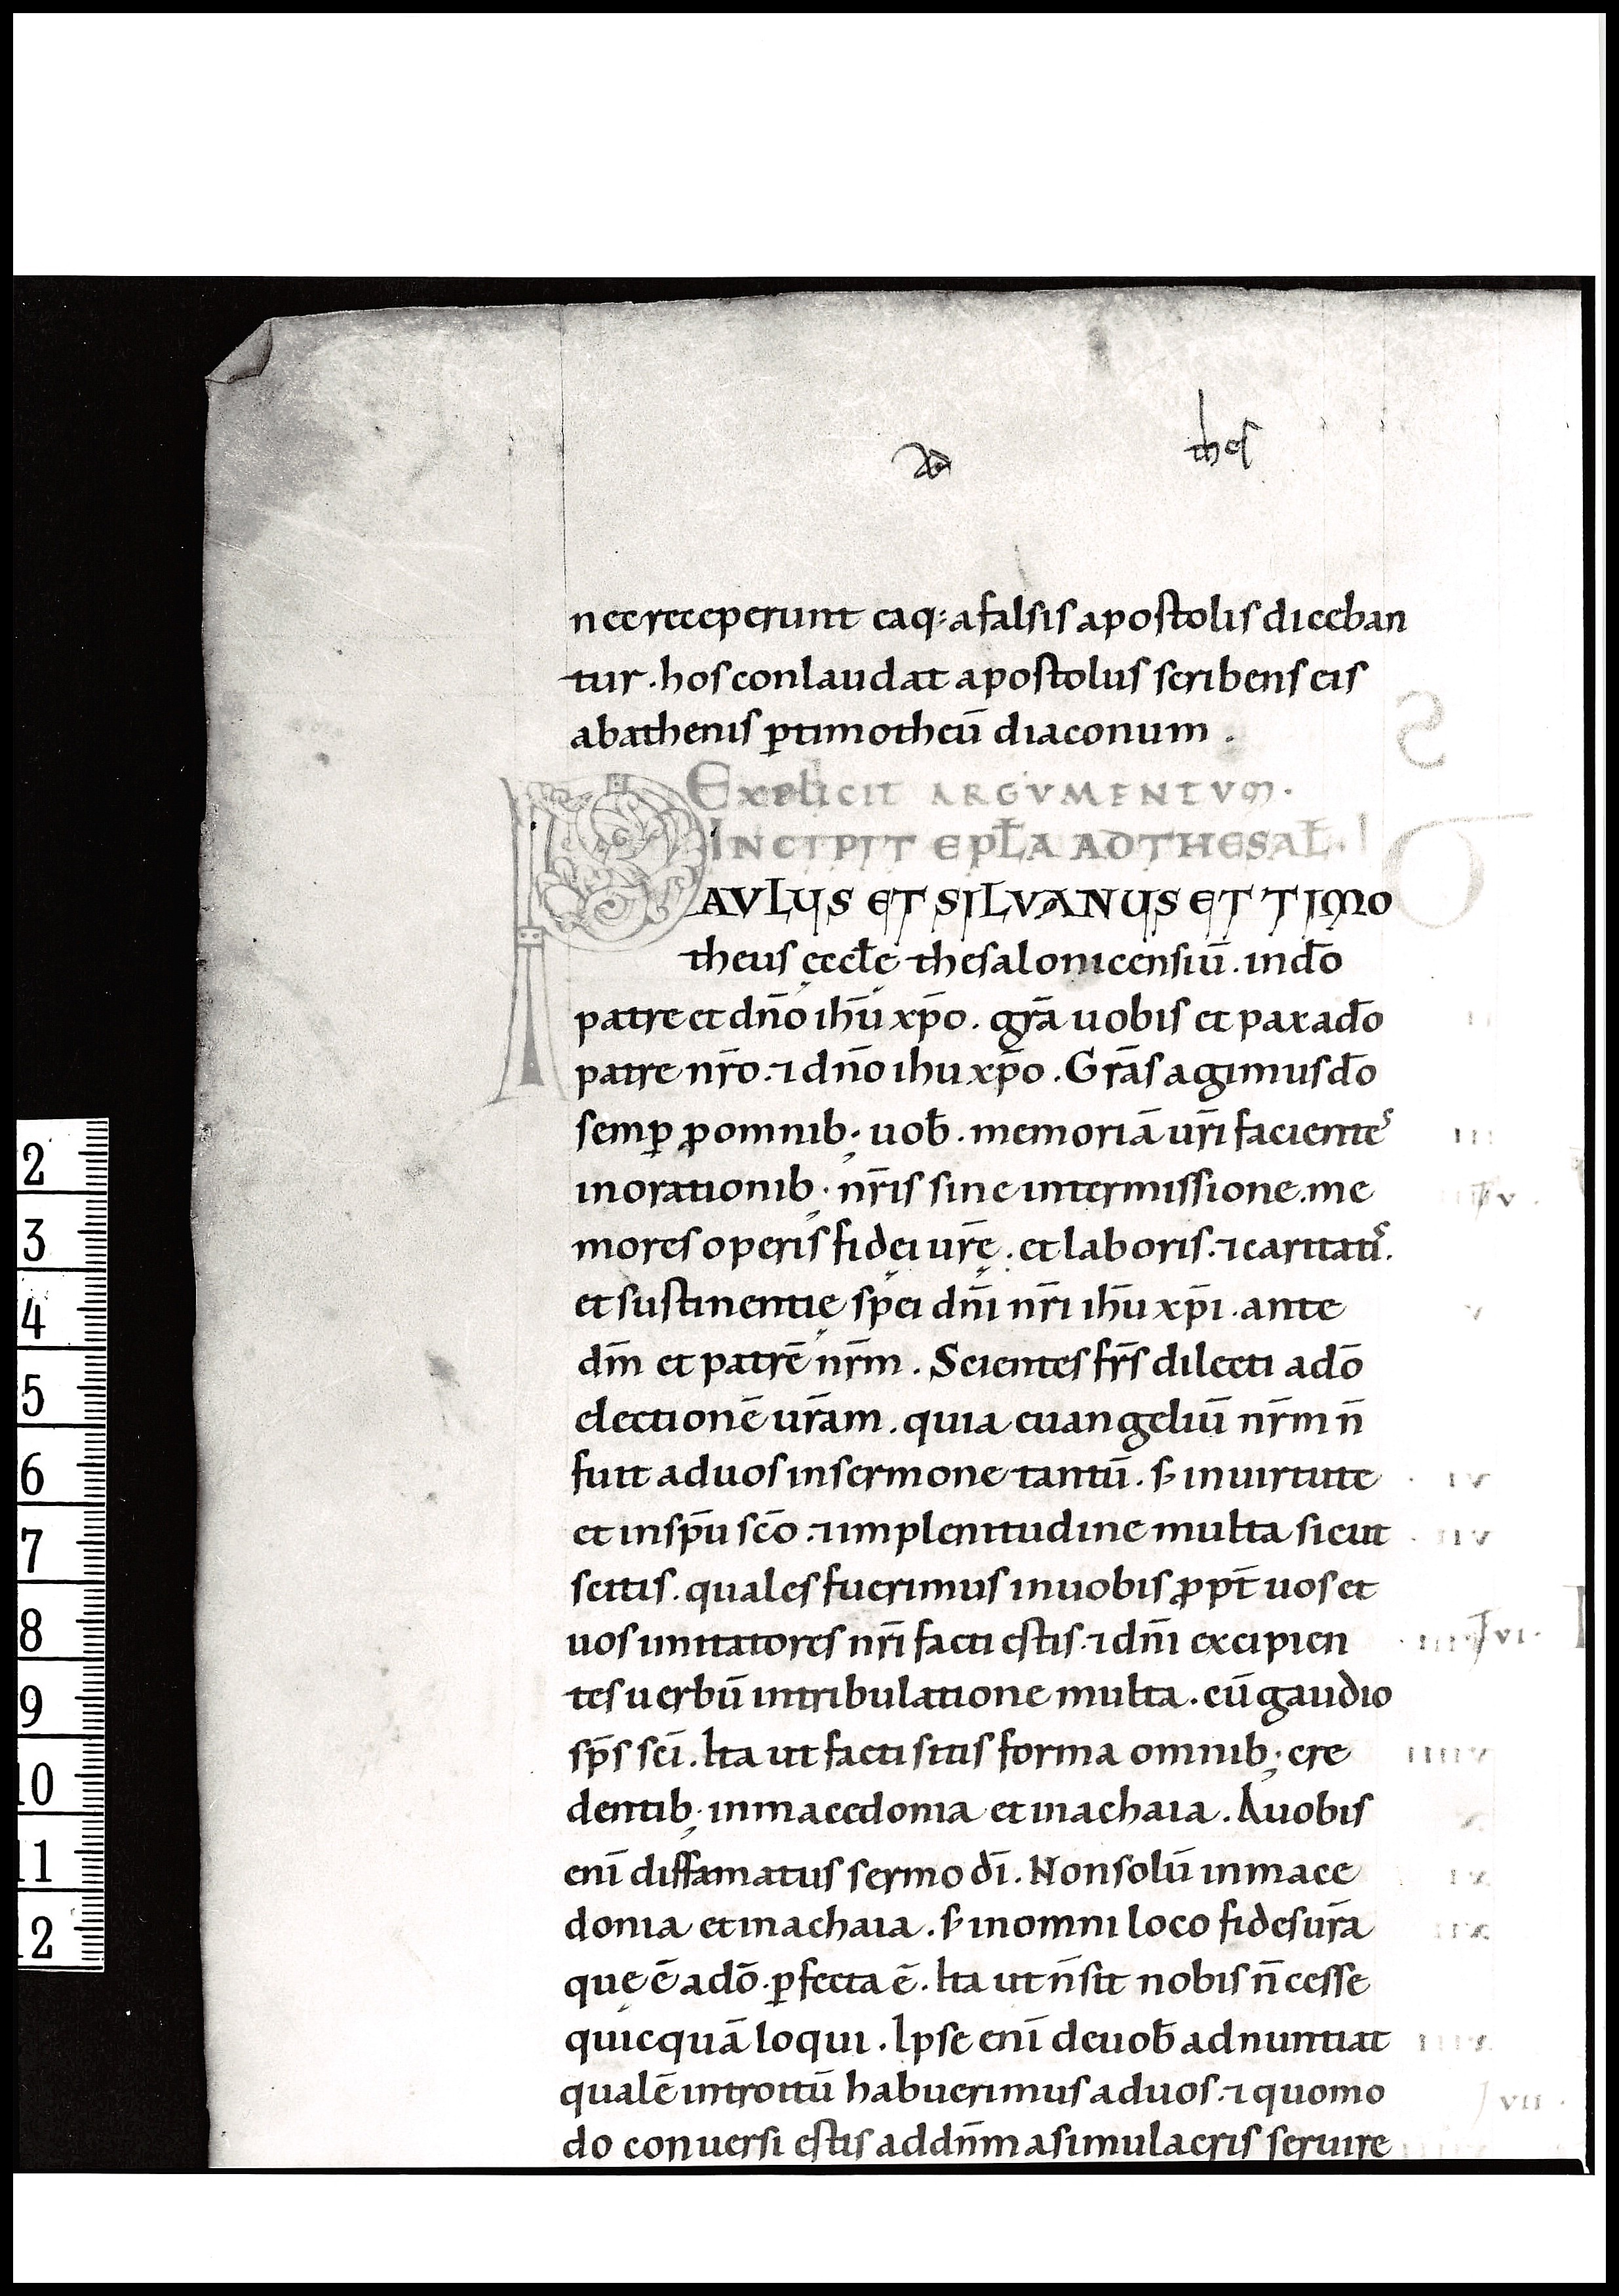 ad thes
nec receperunt eaq: a falsis apostolis diceban
tur. hos conlaudat apostolus scribens eis
ab athenis ꝑ timotheū diaconum.
EXPLICIT ARGVMENTVM.
INCIPIT EPLA AD THESAL. I
PAVLUS ET SILVANUS ET TIMO
theus ęccłę thesalonicensiū. in dō
patre et dn̄o ihū xp̄o. gr̄a uobis et pax a dō
patre nr̄o. ⁊ dn̄o ihu xp̄o. Gr̄as agimus dō
semꝑ ꝓ omnib; uob̄. memoriā ur̄i facientes
in orationib; nr̄is sine intermissione. me
mores operis fidei ur̄ę. et laboris. ⁊ caritatis.
et sustinentię spei dn̄i nr̄i ihū xp̄i. ante
dm̄ et patrē nr̄m. Scientes fr̄s dilecti a dō
electionē ur̄am. quia euangeliū nr̄m n̄
fuit ad uos in sermone tantū. s; in uirtute
et in sp̄u sc̄o. ⁊ in plenitudine multa sicut
scitis. quales fuerimus in uobis ꝓpt̄ uos et
uos imitatores nr̄i facti estis. ⁊ dn̄i excipien
tes uerbū in tribulatione multa. cū gaudio
sp̄s sc̄i. Ita ut facti sitis forma omnib; cre
dentib; in macedonia et in achaia. A uobis
enī diffamatus sermo dī. Non solū in mace
donia et in achaia. s; in omni loco fides ur̄a
quę ē ad dō. ꝑfecta ē. Ita ut n̄ sit nobis n̄cesse
quicquā loqui. Ipse enī de uob̄ adnuntiat
qualē introitū habuerimus ad uos. ⁊ quomo
do conuersi estis ad dn̄m a simulacris seruire
2
3
4
5
6
7
8
9
10
11
12